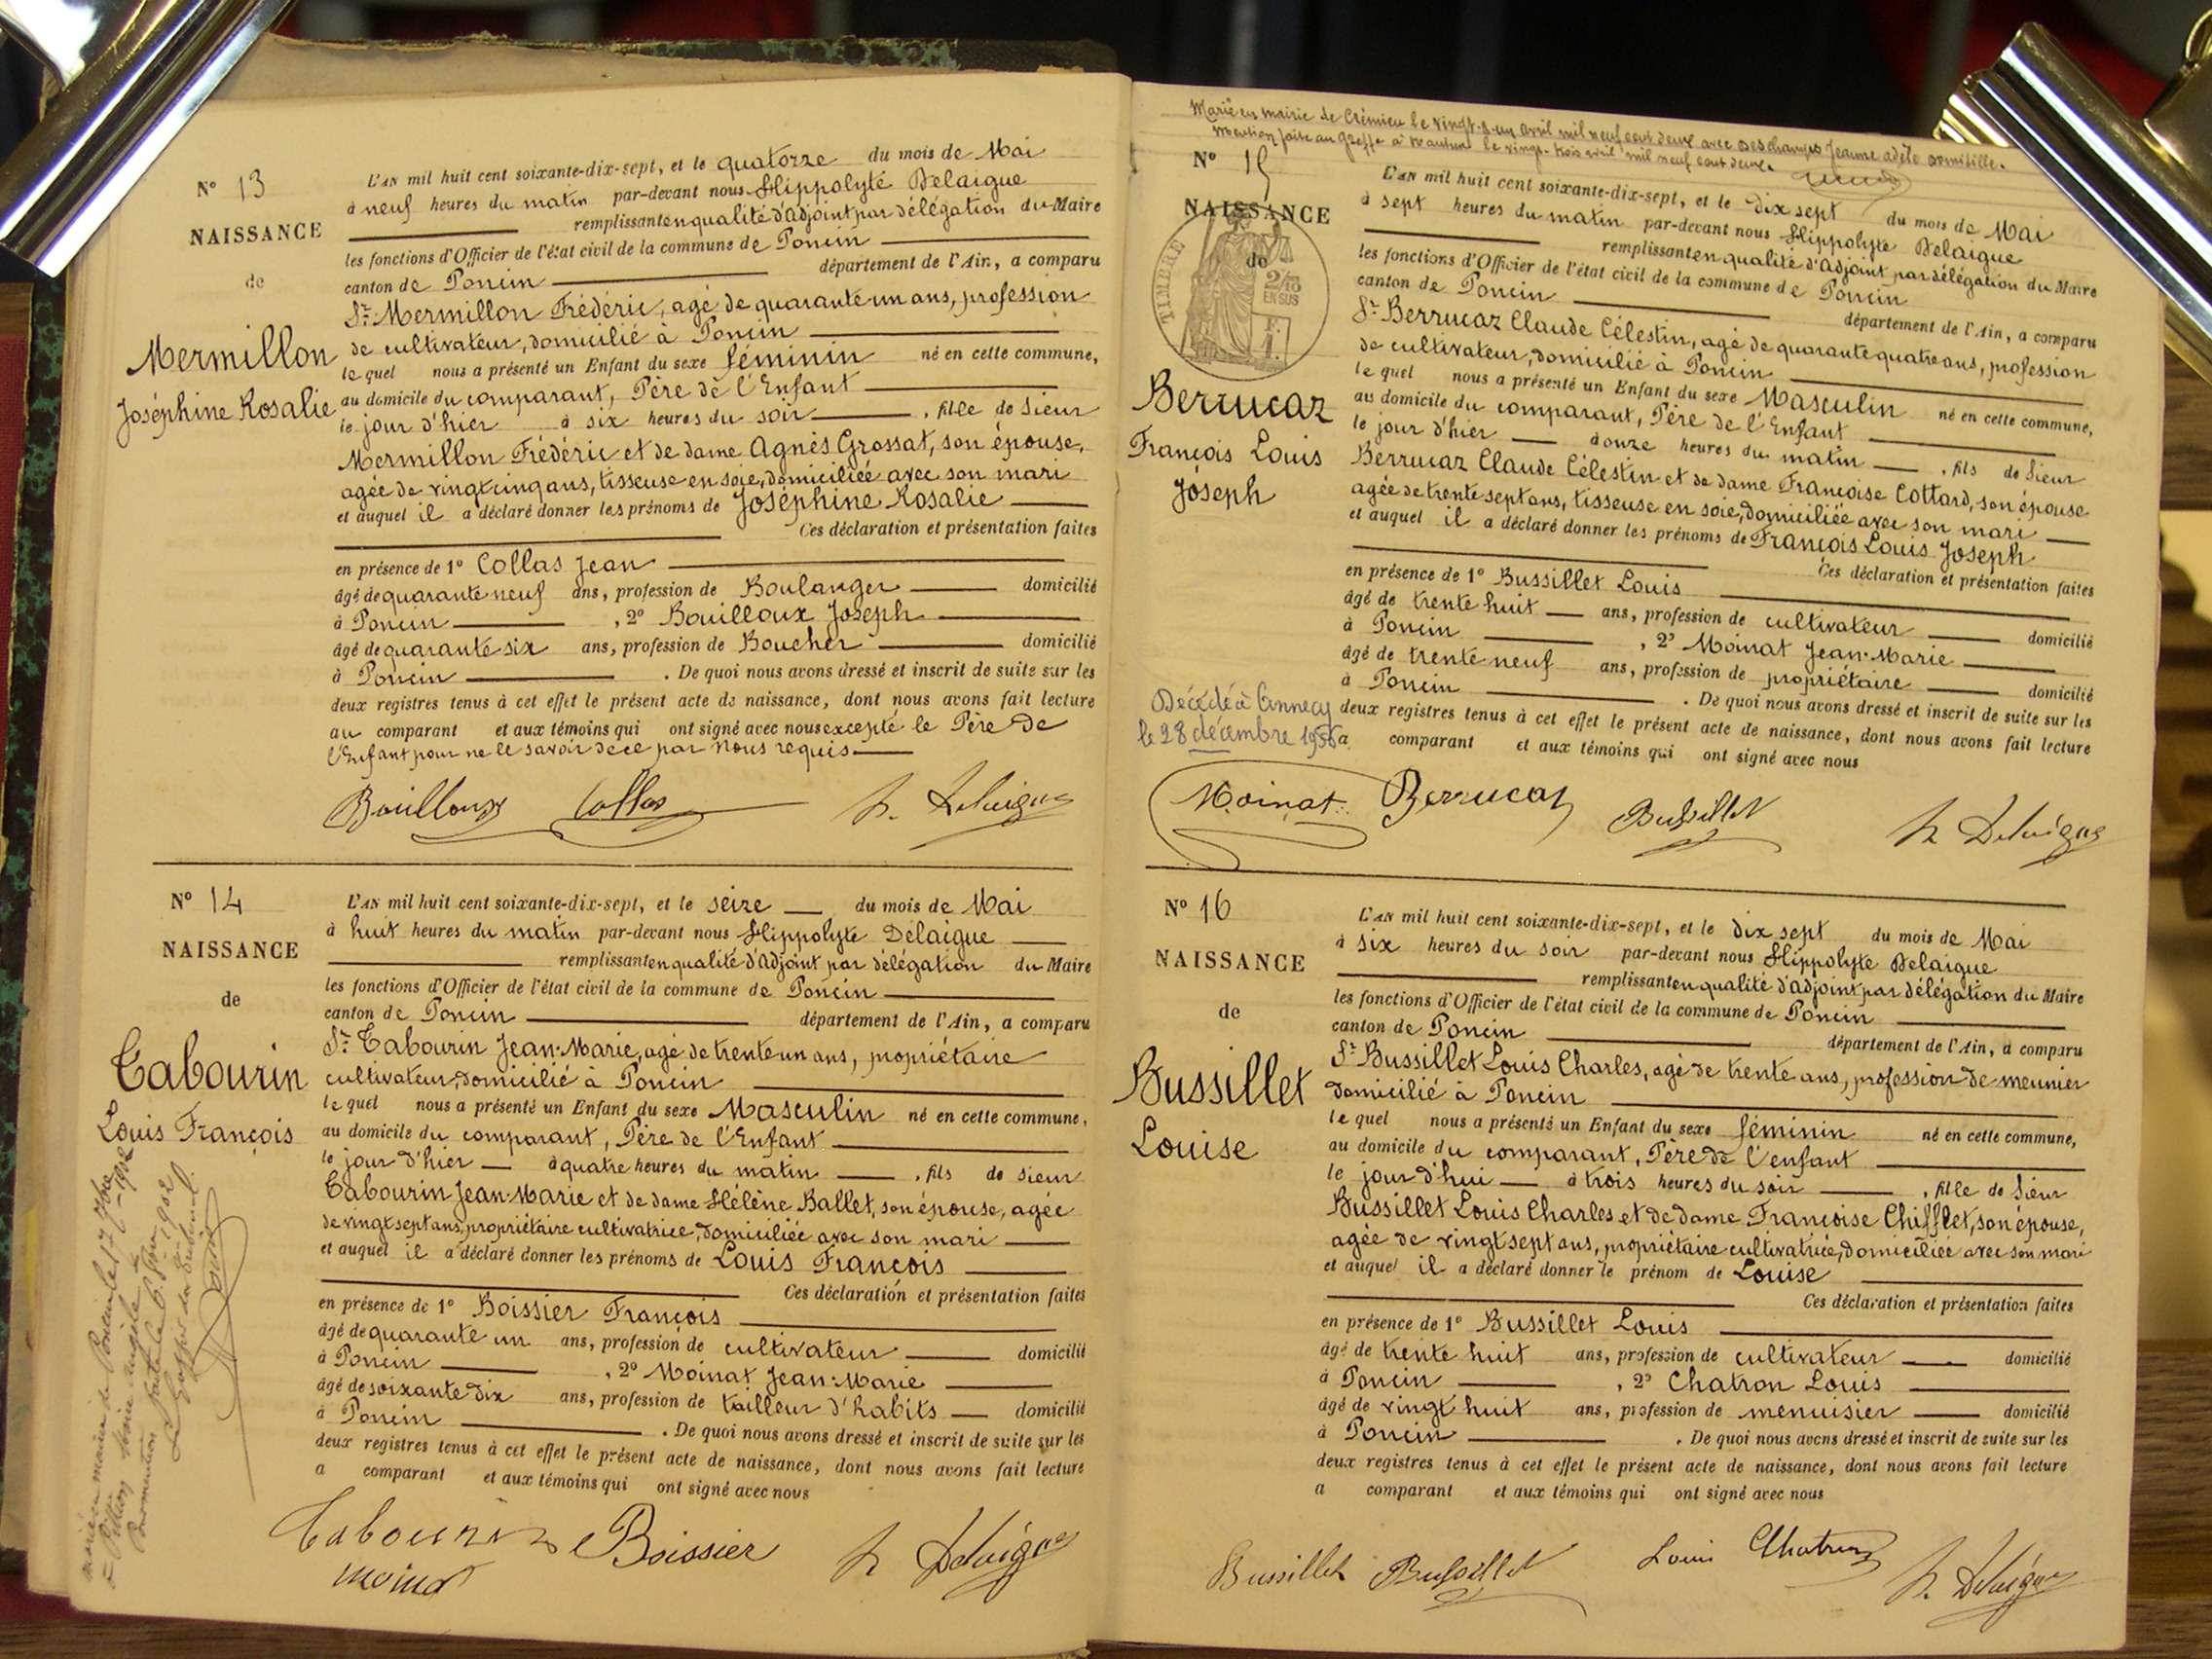 N° 13
NAISSANCE
de
Mermillon
Joséphine Rosalie
L'AN mil huit cent soixante-dix-sept, et le quatorze du mois de Mai
à neuf heures du matin par-devant nous Hippolyte Delaigue
remplissant en qualité d'adjoint par délégation du Maire
les fonctions d'Officier de l'état civil de la commune de Poncin
canton de Poncin département de l'Ain, a comparu
Sr Mermillon Frédéric, agé de quarante un ans, profession
de cultivateur, domicilié à Poncin
le quel nous a présenté un Enfant du sexe féminin né en cette commune,
au domicile du comparant, Père de l'Enfant
le jour d'hier à six heures du soir , fille de Sieur
Mermillon Frédéric et de dame Agnès Grossat, son épouse,
agée de vingt cinq ans, tisseuse en soie, domiciliée avec son mari
et auquel il a déclaré donner les prénoms de Joséphine Rosalie
Ces déclaration et présentation faites
en présence de 1° Collas Jean
âgé de quarante neuf ans, profession de Boulanger domicilié
à Poncin , 2° Bouilloux Joseph
âgé de quarante six ans, profession de Boucher domicilié
à Poncin . De quoi nous avons dressé et inscrit de suite sur les
deux registres tenus à cet effet le présent acte de naissance, dont nous avons fait lecture
au comparant et aux témoins qui ont signé avec nous excepté le Père de
l'Enfant pour ne le savoir de ce par Nous requis
Bouilloux Collas h. Delaigue
N° 14
NAISSANCE
de
Tabourin
Louis François
L'AN mil huit cent soixante-dix-sept, et le seize du mois de Mai
à huit heures du matin par-devant nous Hippolyte Delaigue
remplissant en qualité d'adjoint par délégation du Maire
les fonctions d'Officier de l'état civil de la commune de Poncin
canton de Poncin département de l'Ain, a comparu
Sr Tabourin Jean-Marie, agé de trente un ans, propriétaire
cultivateur, domicilié à Poncin
le quel nous a présenté un Enfant du sexe Masculin né en cette commune,
au domicile du comparant, Père de l'Enfant
le jour d'hier à quatre heures du matin , fils de Sieur
Tabourin Jean-Marie et de dame Hélène Ballet, son épouse, agée
de vingt sept ans, propriétaire cultivatrice, domiciliée avec son mari
et auquel il a déclaré donner les prénoms de Louis François
Ces déclaration et présentation faites
en présence de 1° Boissier François
âgé de quarante un ans, profession de cultivateur domicilié
à Poncin , 2° Moinat Jean-Marie
âgé de soixante dix ans, profession de tailleur d'habits domicilié
à Poncin . De quoi nous avons dressé et inscrit de suite sur les
deux registres tenus à cet effet le présent acte de naissance, dont nous avons fait lecture
a comparant et aux témoins qui ont signé avec nous
Tabourin Boissier h Delaigue
moinat
Marié en mairie de Crémieu le vingt-&-un avril mil neuf cent deux avec Deschamps Jeanne adèle
Mention faite au Greffe à Nantua le vingt-trois avril mil neuf cent deux.
N° 15
NAISSANCE
de
TIMBRE
2/10
EN SUS
Berrucaz
François Louis
Joseph
L'AN mil huit cent soixante-dix-sept, et le dix sept du mois de Mai
à sept heures du matin par-devant nous Hippolyte Delaigue
remplissant en qualité d'Adjoint par délégation du Maire
les fonctions d'Officier de l'état civil de la commune de Poncin
canton de Poncin département de l'Ain, a comparu
Sr Berrucaz Claude Célestin, agé de quarante quatre ans, profession
de cultivateur, domicilié à Poncin
le quel nous a présenté un Enfant du sexe Masculin né en cette commune,
au domicile du comparant, Père de l'Enfant
le jour d'hier à onze heures du matin , fils de Sieur
Berrucaz Claude Célestin et de dame Françoise Cottard, son épouse
agée de trente sept ans, tisseuse en soie, domiciliée avec son mari
et auquel il a déclaré donner les prénoms de François Louis Joseph
Ces déclaration et présentation faites
en présence de 1° Bussillet Louis
âgé de trente huit ans, profession de cultivateur domicilié
à Poncin , 2° Moinat Jean-Marie
âgé de trente neuf ans, profession de propriétaire domicilié
à Poncin . De quoi nous avons dressé et inscrit de suite sur les
deux registres tenus à cet effet le présent acte de naissance, dont nous avons fait lecture
a comparant et aux témoins qui ont signé avec nous
Décédé à Annecy
le 28 décembre
Moinat Berrucaz Bussillet h Delaigue
N° 16
NAISSANCE
de
Bussillet
Louise
L'AN mil huit cent soixante-dix-sept, et le dix sept du mois de Mai
à six heures du soir par-devant nous Hippolyte Delaigue
remplissant en qualité d'adjoint par délégation du Maire
les fonctions d'Officier de l'état civil de la commune de Poncin
canton de Poncin département de l'Ain, a comparu
Sr Bussillet Louis Charles, agé de trente ans, profession de meunier
domicilié à Poncin
le quel nous a présenté un Enfant du sexe féminin né en cette commune,
au domicile du comparant, Père de l'enfant
le jour d'hui à trois heures du soir , fille de Sieur
Bussillet Louis Charles et de dame Françoise Chifflet, son épouse,
agée de vingt sept ans, propriétaire cultivatrice, domiciliée avec son mari
et auquel il a déclaré donner le prénom de Louise
Ces déclaration et présentation faites
en présence de 1° Bussillet Louis
âgé de trente huit ans, profession de cultivateur domicilié
à Poncin , 2° Chatron Louis
âgé de vingt huit ans, profession de menuisier domicilié
à Poncin . De quoi nous avons dressé et inscrit de suite sur les
deux registres tenus à cet effet le présent acte de naissance, dont nous avons fait lecture
a comparant et aux témoins qui ont signé avec nous
Bussillet Bussillet Louis Chatron h. Delaigue